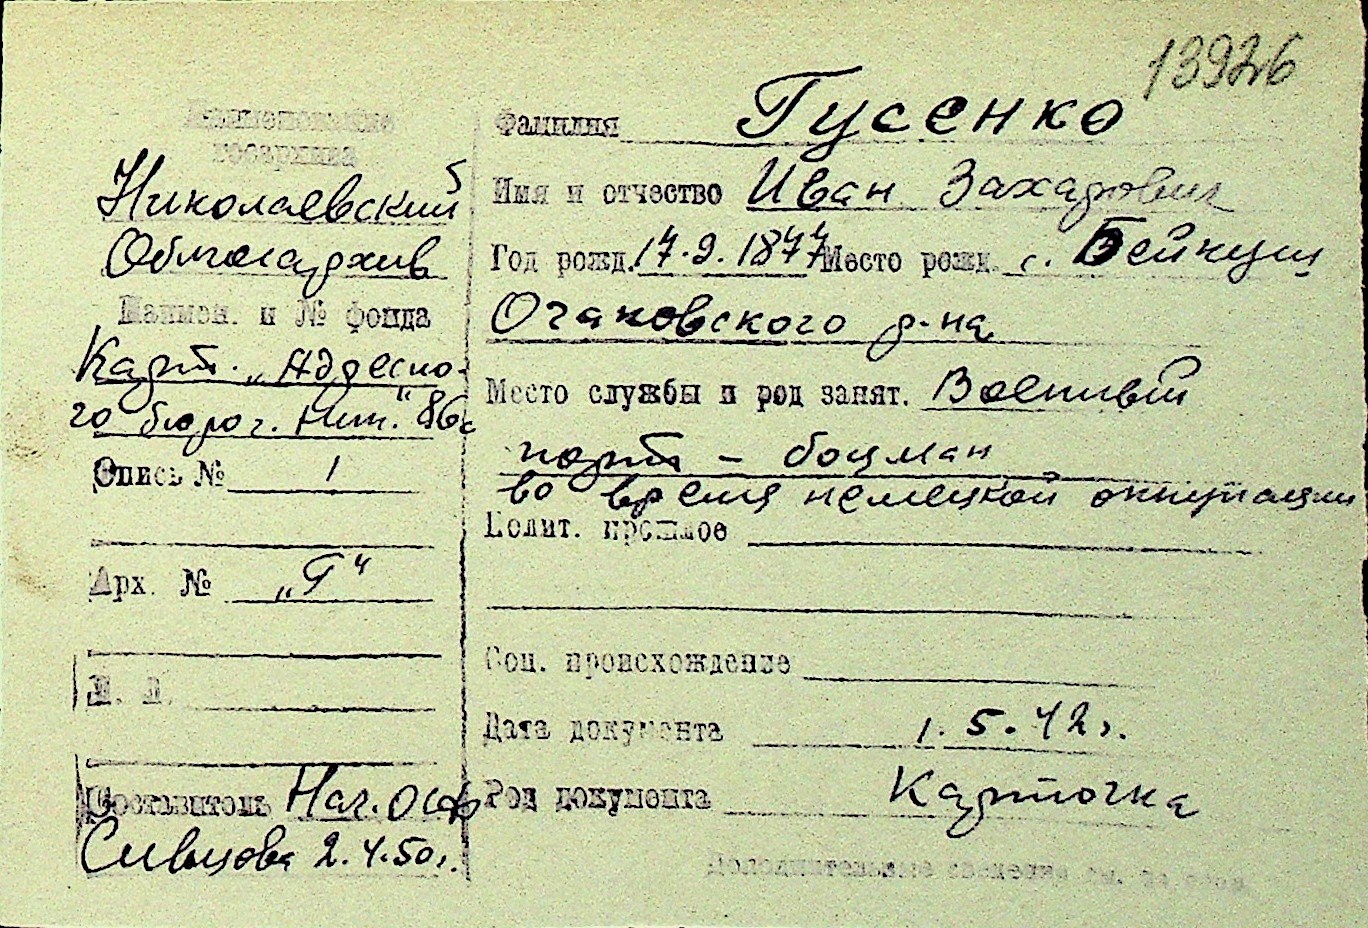 13926
Наименование
госархива
Николаевский
Облгосархив
Наимен. и № фонда
Карт. „Адресно-
го бюро г. Ник."
Опись № 1
Арх. № „Г"
Составитель Нач. ОСФ
Сивцова 2.4.50г.
Фамилия Гусенко
Имя и отчество Иван Захарович
Год рожд. 17.9.1877 Место рожд. с. Бейкуш
Очаковского р-на
Место службы и род занят. Военный
порт – боцман
во время немецкой оккупации
Полит. прошлое
Соц. происхождение
Дата документа 1.5.42г.
Род документа Карточка
Дополнительные сведения см. на обор.